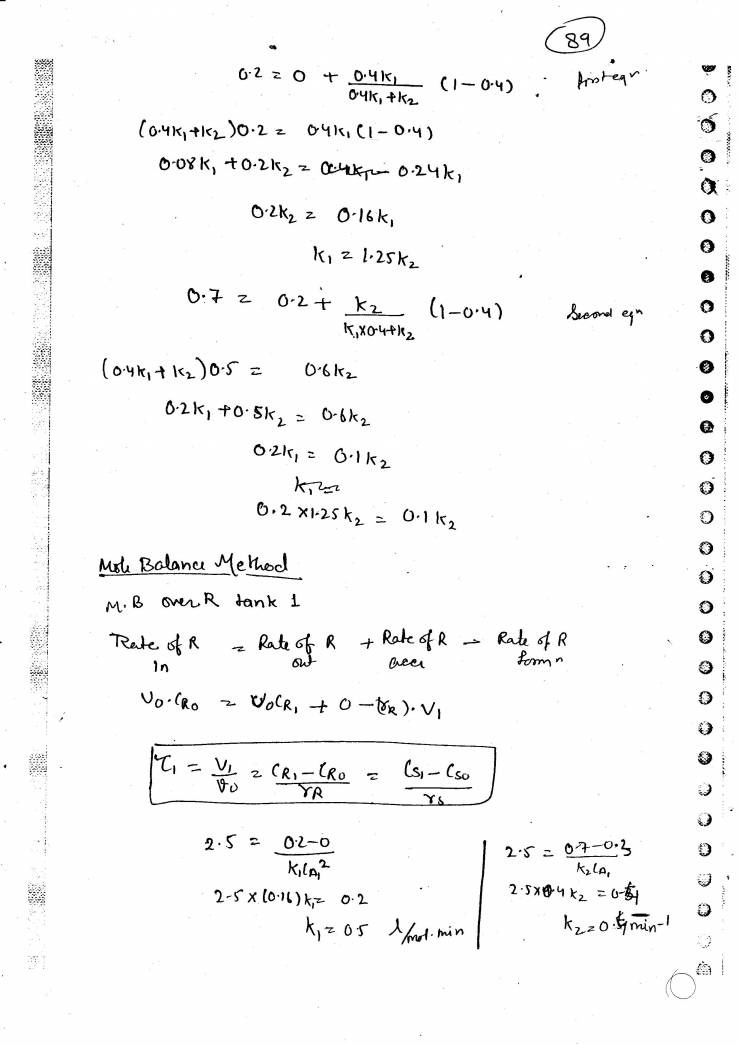 89
0.2 = 0 + 0.4K₁/(0.4K₁ + K₂) (1 – 0.4) :
(0.4K₁ + K₂)0.2 = 0.4K₁(1 – 0.4)
0.08K₁ + 0.2K₂ = 0.24K₁
0.2K₂ = 0.16K₁
K₁ = 1.25K₂
0.7 = 0.2 + K₂/(K₁×0.4+K₂) (1–0.4) Second eqn
(0.4K₁ + K₂)0.5 = 0.6K₂
0.2K₁ + 0.5K₂ = 0.6K₂
0.2K₁ = 0.1K₂
0.2 × 1.25K₂ = 0.1K₂
Mole Balance Method
M.B over R tank 1
Rate of R in = Rate of R out + Rate of R accn – Rate of R formn
V₀.C_R₀ = V₀C_R₁ + 0 – (r_R).V₁
τ₁ = V₁/v₀ = (C_R₁ – C_R₀)/r_R = (C_S₁ – C_S₀)/r_S
2.5 = (0.2–0)/(K₁C_A₁²)
2.5 × (0.16)K₁ = 0.2
K₁ = 0.5 l/mol.min
2.5 = (0.7–0.3)/(K₂C_A₁)